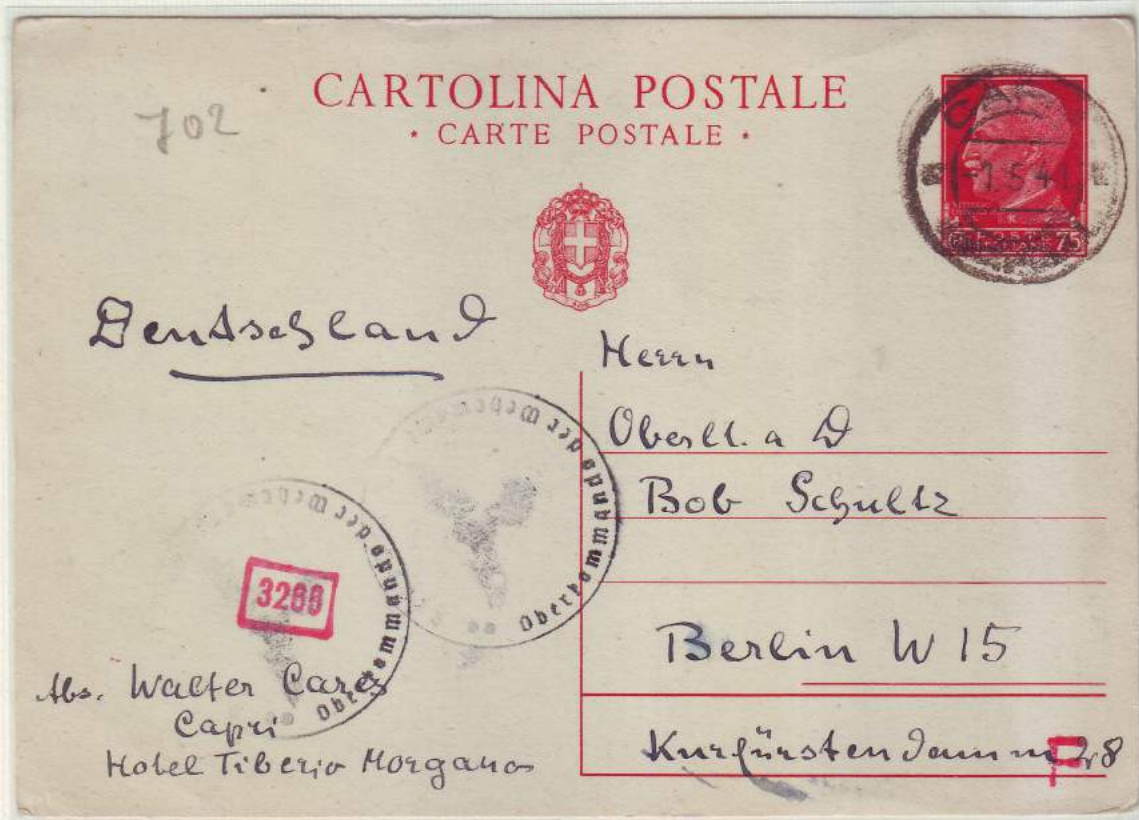 CARTOLINA POSTALE
* CARTE POSTALE *
702
CA
-1.5.41
75
Deutschland
Herrn
Oberlt. a D
Bob Schultz
Berlin W 15
Kurfürstendamm
Oberkommando der Wehrmacht
Oberkommando der Wehrmacht
Abs. Walter
Capri
Hotel Tiberio Morgano